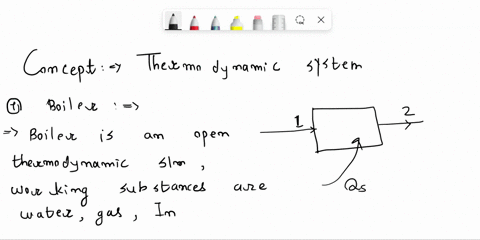 Concept :-> Thermodynamic system
① Boiler :->
=> Boiler is an open
thermodynamic s/m,
working substances are
water, gas, In
1
2
Qs